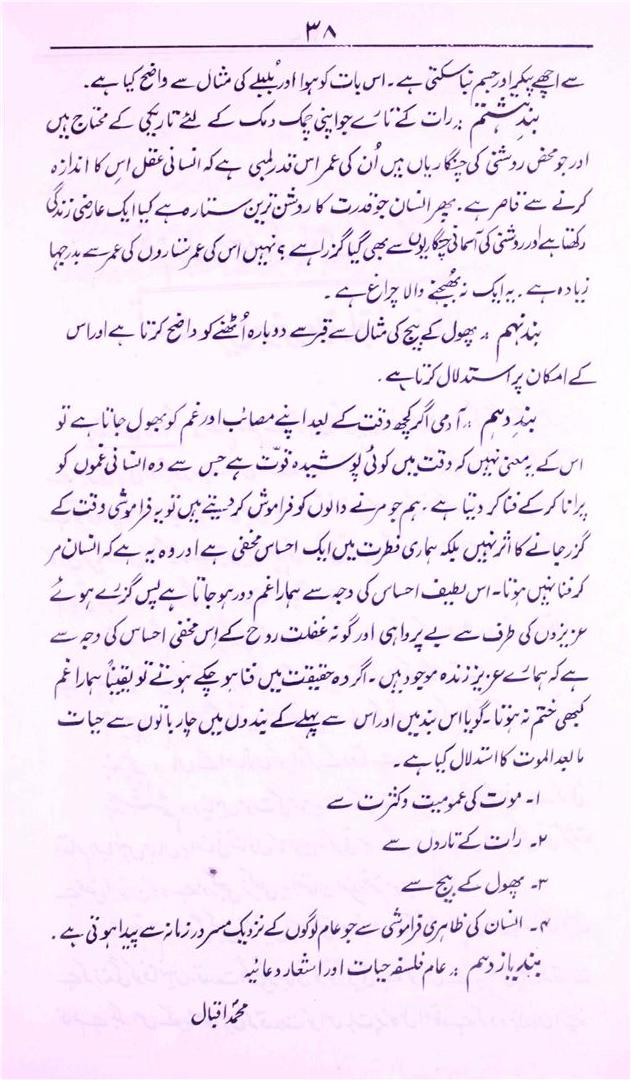 ۳۸
سے اچھے پیکر اور جسم بنا سکتی ہے۔ اس بات کو ہوا اور بُلبلے کی مثال سے واضح کیا ہے۔
بندِ ہشتم :۔ رات کے تارے جو اپنی چمک دمک کے لئے تاریکی کے محتاج ہیں
اور جو محض روشنی کی چنگاریاں ہیں اُن کی عمر اس قدر لمبی ہے کہ انسانی عقل اس کا اندازہ
کرنے سے قاصر ہے۔ پھر انسان جو قدرت کا روشن ترین ستارہ ہے کیا ایک عارضی زندگی
رکھتا ہے اور روشنی کی آسمانی چنگاریوں سے بھی گیا گزرا ہے؟ نہیں اس کی عمر ستاروں کی عمر سے بدرجہا
زیادہ ہے۔ یہ ایک نہ بُجھنے والا چراغ ہے۔
بندِ نہم :۔ پھول کے بیج کی مثال سے قبر سے دوبارہ اُٹھنے کو واضح کرتا ہے اور اس
کے امکان پر استدلال کرتا ہے۔
بندِ دہم :۔ آدمی اگر کچھ وقت کے بعد اپنے مصائب اور غم کو بھول جاتا ہے تو
اس کے یہ معنی نہیں کہ وقت میں کوئی پوشیدہ قوّت ہے جس سے وہ انسانی غموں کو
پرانا کر کے فنا کر دیتا ہے۔ ہم جو مرنے والوں کو فراموش کر دیتے ہیں تو یہ فراموشی وقت کے
گزر جانے کا اثر نہیں بلکہ ہماری فطرت میں ایک احساس مخفی ہے اور وہ یہ ہے کہ انسان مر
کر فنا نہیں ہوتا۔ اس لطیف احساس کی وجہ سے ہمارا غم دور ہو جاتا ہے پس گزرے ہوئے
عزیزوں کی طرف سے بے پرواہی اور گونہ غفلت روح کے اِس مخفی احساس کی وجہ سے
ہے کہ ہمارے عزیز زندہ موجود ہیں۔ اگر وہ حقیقت میں فنا ہو چکے ہوتے تو یقیناً ہمارا غم
کبھی ختم نہ ہوتا۔ گویا اس بند میں اور اس سے پہلے کے بندوں میں چار باتوں سے حیات
مابعد الموت کا استدلال کیا ہے۔
۱۔ موت کی عمومیت و کثرت سے
۲۔ رات کے تاروں سے
۳۔ پھول کے بیج سے
۴۔ انسان کی ظاہری فراموشی سے جو عام لوگوں کے نزدیک مرور زمانہ سے پیدا ہوتی ہے۔
بندِ یازدہم :۔ عام فلسفہ حیات اور اشعار دعائیہ
محمدؐ اقبال